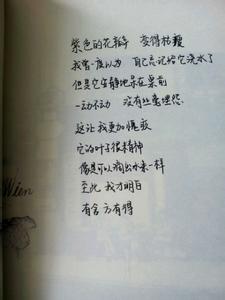 紫色的花瓣 变得枯萎
我曾一度以为 自己忘记给它浇水了
但是它安静地呆在桌前
一动不动 没有丝毫埋怨
这让我更加惭疚
它的叶子很精神
像是可以滴出水来一样
至此 我才明白
有舍方有得
Wien